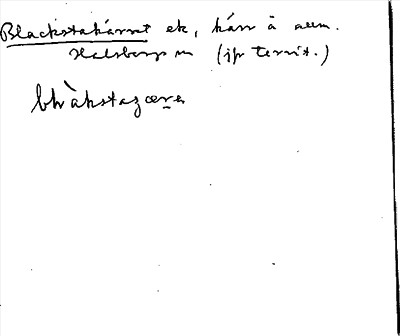 Blackstakärret ek, kärr å allm.
Halsberg m (jfr territ.)
blàkstazære